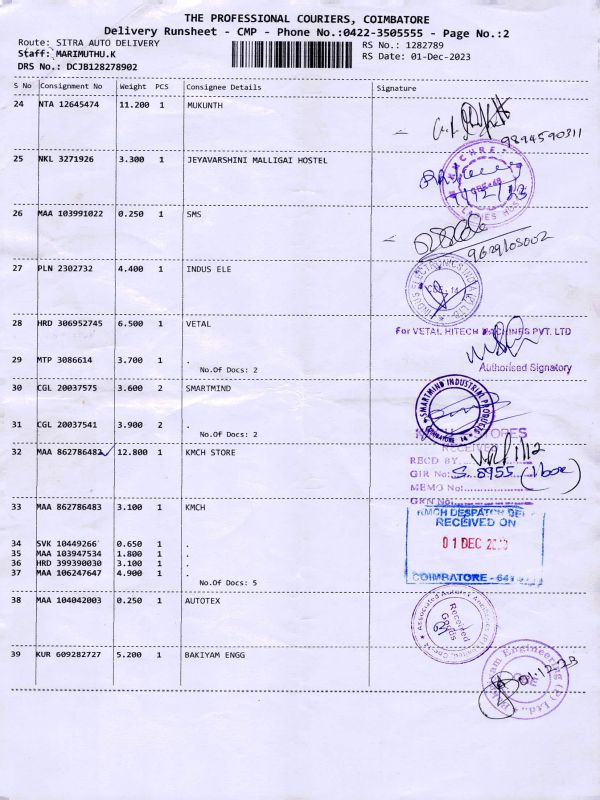 THE PROFESSIONAL COURIERS, COIMBATORE
Delivery Runsheet - CMP - Phone No.:0422-3505555 - Page No.:2
Route: SITRA AUTO DELIVERY
Staff: MARIMUTHU.K
DRS No.: DCJB128278902
RS No.: 1282789
RS Date: 01-Dec-2023
S No Consignment No Weight PCS Consignee Details Signature
24 NTA 12645474 11.200 1 MUKUNTH
9894590311
25 NKL 3271926 3.300 1 JEYAVARSHINI MALLIGAI HOSTEL
LADIES HOSTEL
26 MAA 103991022 0.250 1 SMS
9629105002
27 PLN 2302732 4.400 1 INDUS ELE
28 HRD 306952745 6.500 1 VETAL
For VETAL HITECH MACHINES PVT. LTD
Authorised Signatory
29 MTP 3086614 3.700 1 .
No.Of Docs: 2
30 CGL 20037575 3.600 2 SMARTMIND
SMARTMIND INDUSTRIAL PRODUCTS
COIMBATORE 14
31 CGL 20037541 3.900 2 .
No.Of Docs: 2
32 MAA 862786482 12.800 1 KMCH STORE
STORES
RECEIVED
RECD BY
GIR No: S. 8955 (1 box)
MEMO No:
GRN No:
33 MAA 862786483 3.100 1 KMCH
KMCH DESPATCH DEPT
RECEIVED ON
01 DEC 2023
COIMBATORE - 641
34 SVK 10449266 0.650 1 .
35 MAA 103947534 1.800 1 .
36 HRD 399390030 3.100 1 .
37 MAA 106247647 4.900 1 .
No.Of Docs: 5
38 MAA 104042003 0.250 1 AUTOTEX
Received
Goods
39 KUR 609282727 5.200 1 BAKIYAM ENGG
01.12.23